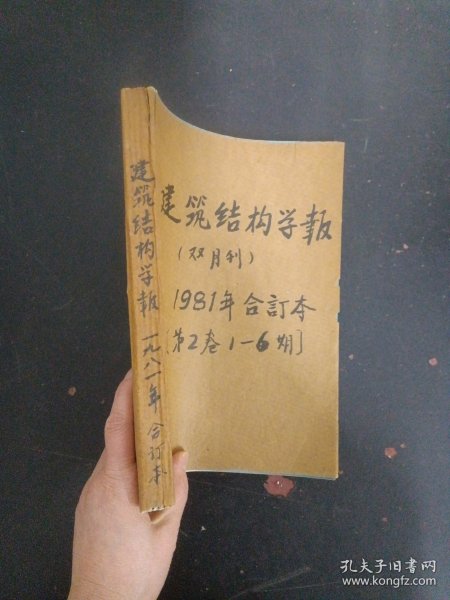 建筑结构学報
(双月刊)
1981年合訂本
[第2卷1-6期]
建筑结构学報 一九八一年 合訂本
孔夫子旧书网
www.kongfz.com